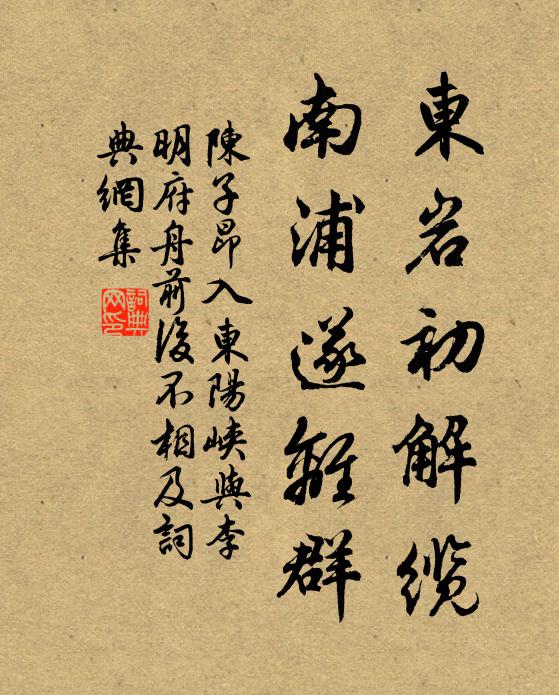 東岩初解缆
南浦遂離群
陳子昂入東陽峽與李
明府舟前後不相及詞
典網集
詞典
网印